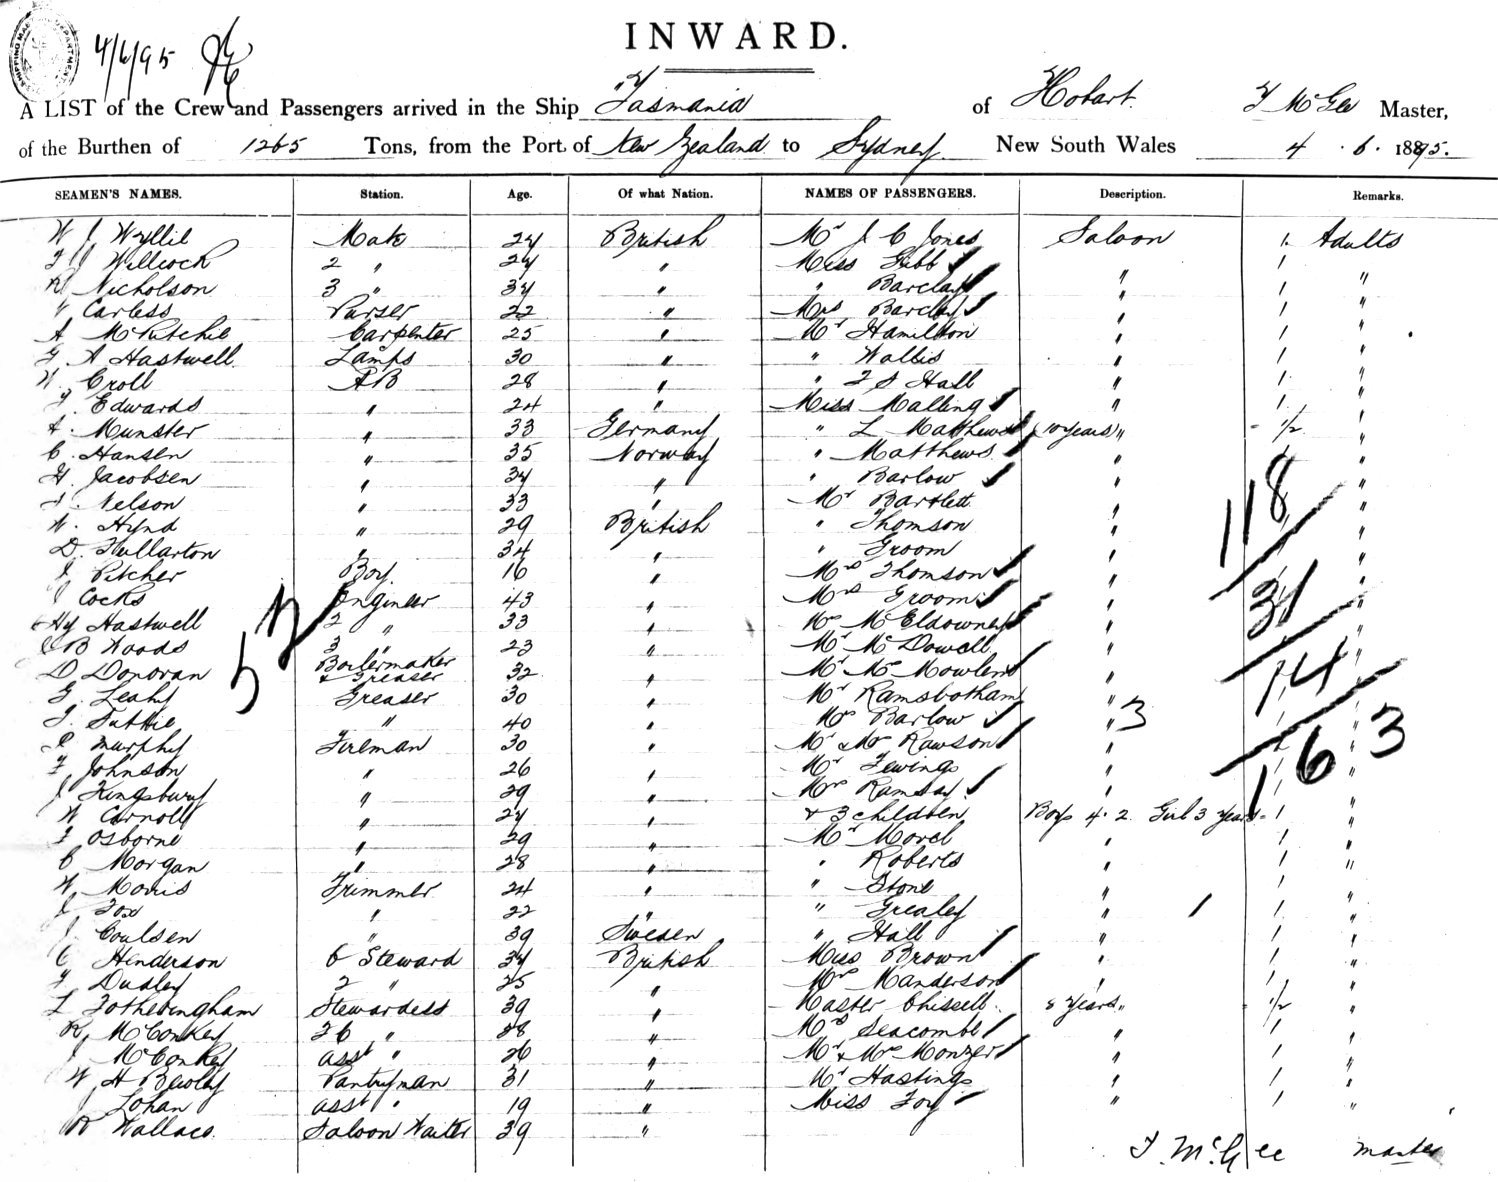 4/6/95
INWARD.
A LIST of the Crew and Passengers arrived in the Ship Tasmania of Hobart. T McGee Master,
of the Burthen of 1265 Tons, from the Port of New Zealand to Sydney New South Wales 4 . 6 . 1895.
SEAMEN'S NAMES. Station. Age. Of what Nation. NAMES OF PASSENGERS. Description. Remarks.
W J Wyllie Mate 24 British Mr J C Jones Saloon 1 Adults
Willcock 2 " 24 " Miss Gibb " 1 "
R Nicholson 3 " 34 " " Barclay " 1 "
" Carless Purser 22 " Mrs Barclay " 1 "
A McRitchie Carpenter 25 " Mr Hamilton " 1 "
G A Hastwell Lamps 30 " " Wallis " 1 "
W. Croll AB 28 " " T S Hall " 1 "
Edwards " 24 " Miss Malling " 1 "
A. Munster " 33 Germany " L Matthews (10 years) " 1/2 "
C. Hansen " 35 Norway " Matthews " 1 "
H. Jacobsen " 34 " " Barlow " 1 "
Nelson " 33 " Mr Bartlett " 118 "
W. Hynd " 29 British " Thomson " "
D. Fullarton " 34 " " Groom " "
J Pitcher Boy. 16 " Mrs Thomson " "
J Cocks Engineer 43 " Mrs Groom " 31 "
Hy Hastwell 2 " 33 " McEldowney " "
B Woods 3 " 23 " Mr McDowell " "
D Donovan Boilermaker & Greaser 32 " " 14 "
G. Leahy Greaser 30 " Mr Ramsbotham " "
T. Tuttie " 40 " Mrs Barlow " 3 "
52
J Murphy Fireman 30 " Mr & Mrs Rawson " 163 "
F Johnson " 26 " Mr Tewings " "
J Kingsbury " 29 " Mrs Ramsay " "
W Carnoll " 24 " & 3 children Boys 4. 2 Girl 3 years 1 "
F Osborne " 29 " Mr Morel " 1 "
C Morgan " 28 " " Roberts " 1 "
W. Morris Trimmer 24 " " Stone " 1 "
J. Fox " 22 " " Grealey " 1 "
J. Coulsen " 39 Sweden " Hall " 1 "
C Henderson C Steward 34 British Miss Brown " 1 "
F Dudley 2 " 25 " Mrs Manderson " 1 "
L Fotheringham Stewardess 39 " Master Chissell. 8 Years " 1/2 "
R McConkey 2C " 28 " Mrs Seacombe " 1 "
J McConkey asst " 26 " Mr & Mrs Monzer " 1 "
W H Pantryman 31 " Mr Hastings " 1 "
J Lohan asst " 19 " Miss Foy " 1 "
R Wallace. Saloon Waiter 39 "
T. McGee master